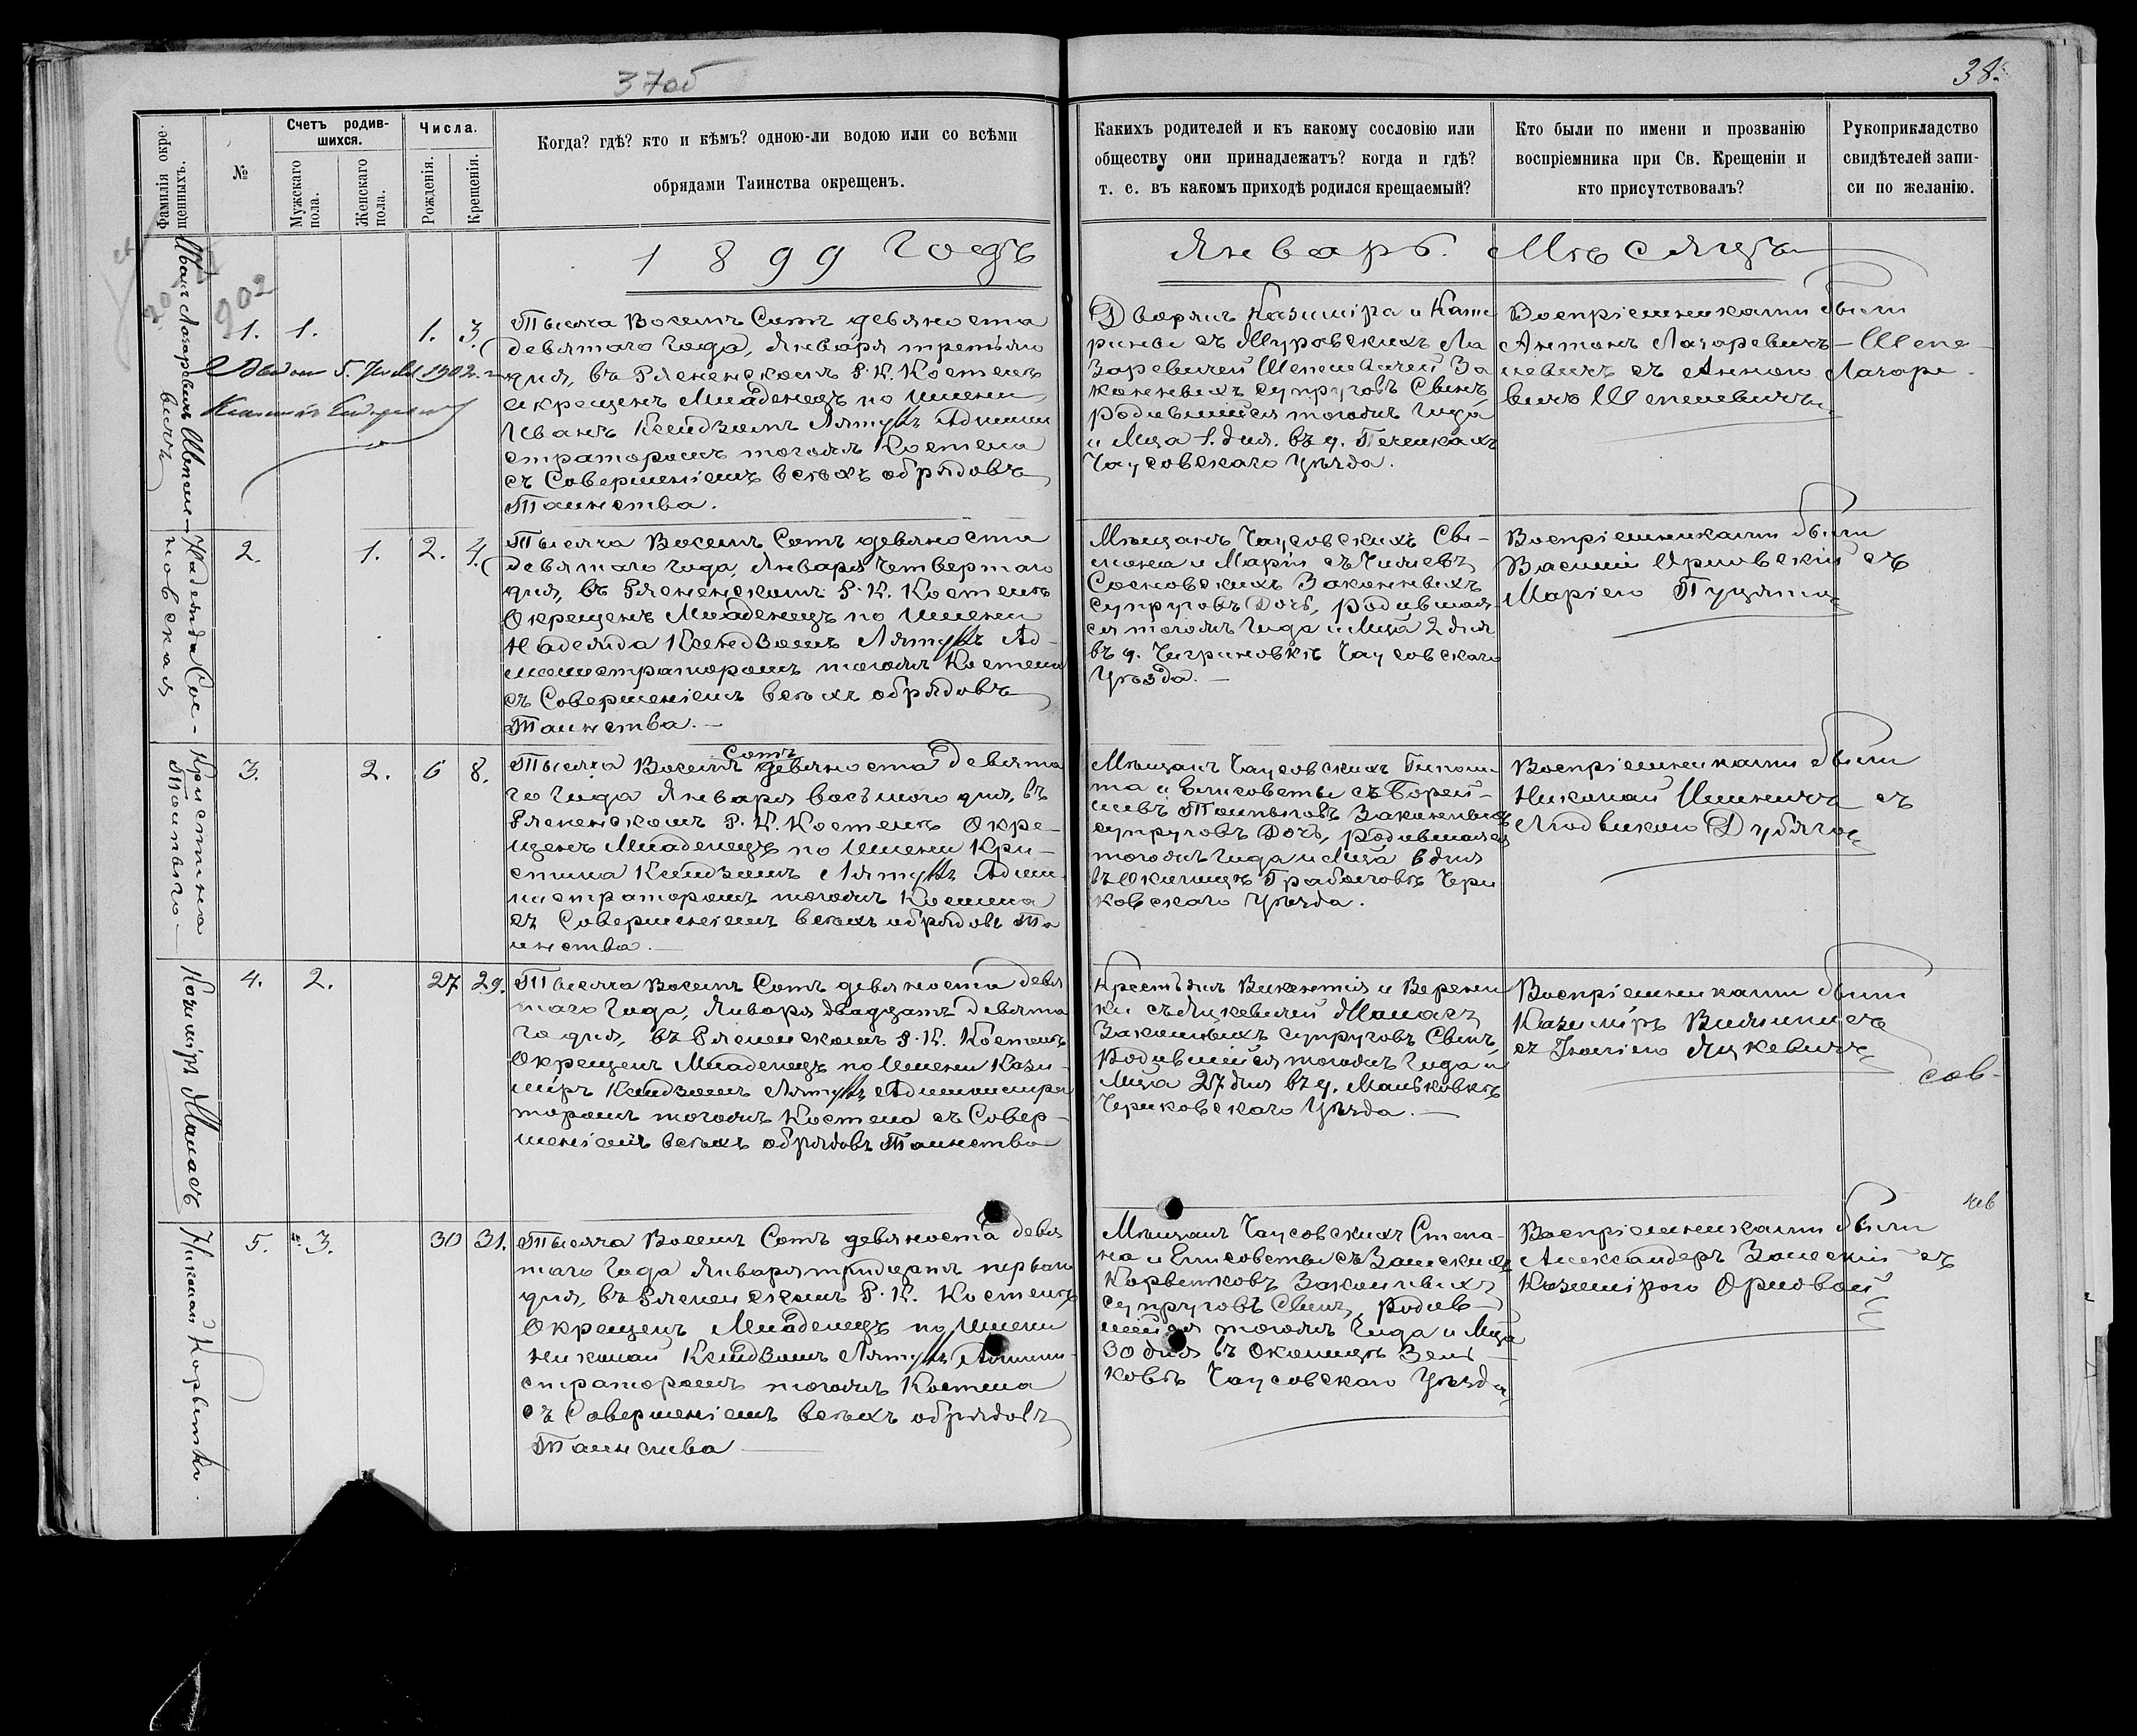 37об
38.
Фамилія окре-
щенныхъ.
№
Счетъ родив-
шихся.
Мужскаго
пола.
Женскаго
пола.
Числа.
Рожденія.
Крещенія.
Когда? гдѣ? кто и кѣмъ? одною-ли водою или со всѣми
обрядами Таинства окрещенъ.
Какихъ родителей и къ какому сословію или
обществу они принадлежатъ? когда и гдѣ?
т. е. въ какомъ приходѣ родился крещаемый?
Кто были по имени и прозванію
воспріемника при Св. Крещеніи и
кто присутствовалъ?
Рукоприкладство
свидѣтелей запи-
си по желанію.
1899 Годъ
Январь. Мѣсяцъ
Иванъ Лазаревичъ Шепеле-
вичъ
902
1. 1. 1. 3.
5. 1902.
Тысяча Восемъ Сотъ девяноста
девятаго Года, Января третьяго
дня, въ Рясненскомъ Р. К. Костелѣ
окрещенъ Младенецъ по имени
Иванъ Ксендзомъ Админи
страторомъ тогожъ Костела
съ Совершеніемъ всѣхъ обрядовъ
Таинства.
Дворянъ Казиміра и Кате
рины съ Муровскихъ Ла
заревичей Шепелевичей За
конныхъ супруговъ Сынъ
родившійся тогожъ Года
и М-ца 1. дня. въ д. Пеленкахъ
Чаусовскаго Уѣзда.
Воспріемниками были
Антонъ Лазаревичъ — Шепе-
левичъ съ Анною Лазаре-
вичъ Шепелевичъ
Надежда Сос-
новская
2. 1. 2. 4.
Тысяча Восемъ Сотъ девяноста
девятаго Года, Января четвертаго
дня, въ Рясненскомъ Р. К. Костелѣ
Окрещенъ Младенецъ по имени
Надежда Ксендзомъ Ад-
министраторомъ тогожъ Костела
съ Совершеніемъ всѣхъ обрядовъ
Таинства. —
Мѣщанъ Чаусовскихъ Си-
мона и Маріи съ
Сосновскихъ Законныхъ
супруговъ Дочь, родившая-
ся тогожъ Года и М-ца 2 дня
въ д. Чигриновкѣ Чаусовскаго
Уѣзда. —
Воспріемниками были
Василій Ярмовскій съ
Маріею
Кристина
3. 2. 6 8.
Тысяча Восемъ Сотъ девяноста девята
го Года Января восьмого дня, въ
Рясненскомъ Р. К. Костелѣ Окре-
щенъ Младенецъ по Имени Кри-
стина Ксендзомъ Адми-
нистраторомъ тогожъ Костела
съ Совершеніемъ всѣхъ обрядовъ Та
инства. —
Мѣщанъ Чаусовскихъ Гипполи-
та и Елисаветы съ
Законныхъ
супруговъ Дочь, родившаяся
тогожъ Года и М-ца 6 дня
въ Околицѣ Грабаловкѣ Чери
ковскаго Уѣзда.
Воспріемниками были
Николай съ
Людвикою Дубягою
Казиміръ Манасъ
4. 2. 27 29.
Тысяча Восемъ Сотъ девяноста девя
таго Года, Января двадцать девята
го дня, въ Рясненскомъ Р. К. Костелѣ
Окрещенъ Младенецъ по Имени Кази-
міръ Ксендзомъ Администра
торомъ тогожъ Костела съ Совер-
шеніемъ всѣхъ обрядовъ Таинства
Крестьянъ Викентія и Верони
ки съ Яцкевичей Манасъ
Законныхъ супруговъ Сынъ,
Родившійся тогожъ Года и
М-ца 27 дня въ д. Маньковкѣ
Чериковскаго Уѣзда. —
Воспріемниками были
Казиміръ
съ Яцкевичъ
сов-
Николай Корветко.
5. 3. 30 31.
Тысяча Восемъ Сотъ девяноста девя
таго Года Января тридцать перваго
дня, въ Рясненскомъ Р. К. Костелѣ
Окрещенъ Младенецъ по Имени
Николай Ксендзомъ Админи-
страторомъ тогожъ Костела
съ Совершеніемъ всѣхъ обрядовъ
Таинства —
Мѣщанъ Чаусовскихъ Степа-
на и Елисаветы съ Залескихъ
Корветковъ Законныхъ
супруговъ Сынъ, родив-
шійся тогожъ Года и М-ца
30 дня въ Околицѣ
Чаусовскаго Уѣзда
Воспріемниками были
Александеръ Залескій съ
Казимірою